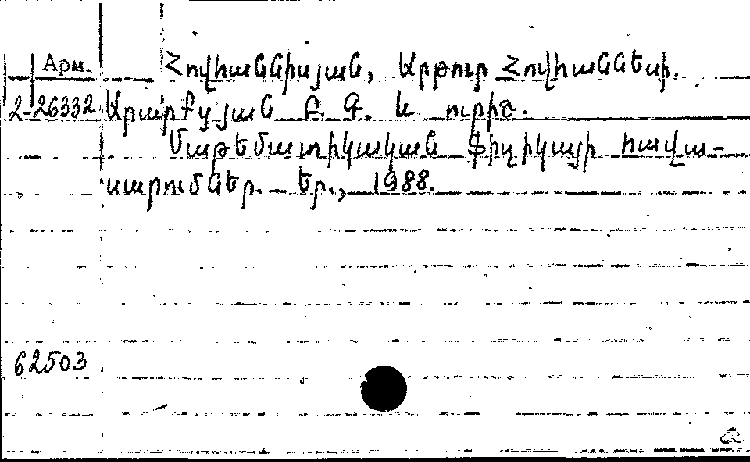 Арм.
Հովհաննիսյան, Արթուր Հովհաննեսի.
2-26332 Առաքելյան Բ. Գ. և ուրիշ.
Մաթեմատիկական ֆիզիկայի հավա-
սարումներ. – Եր., 1988.
62503